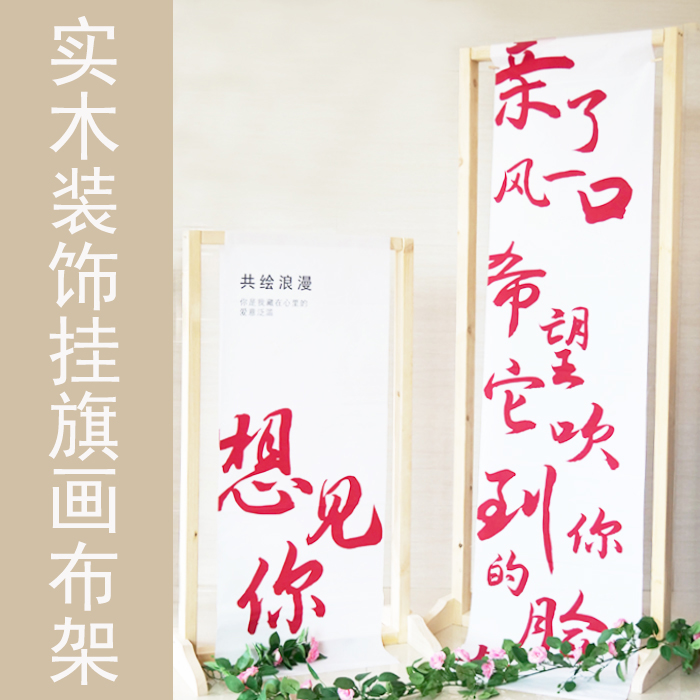 实木装饰挂旗画布架
共绘浪漫
你是我藏在心里的
爱意泛滥
想见
你
亲了
风一口
希望
它吹
到你
的脸